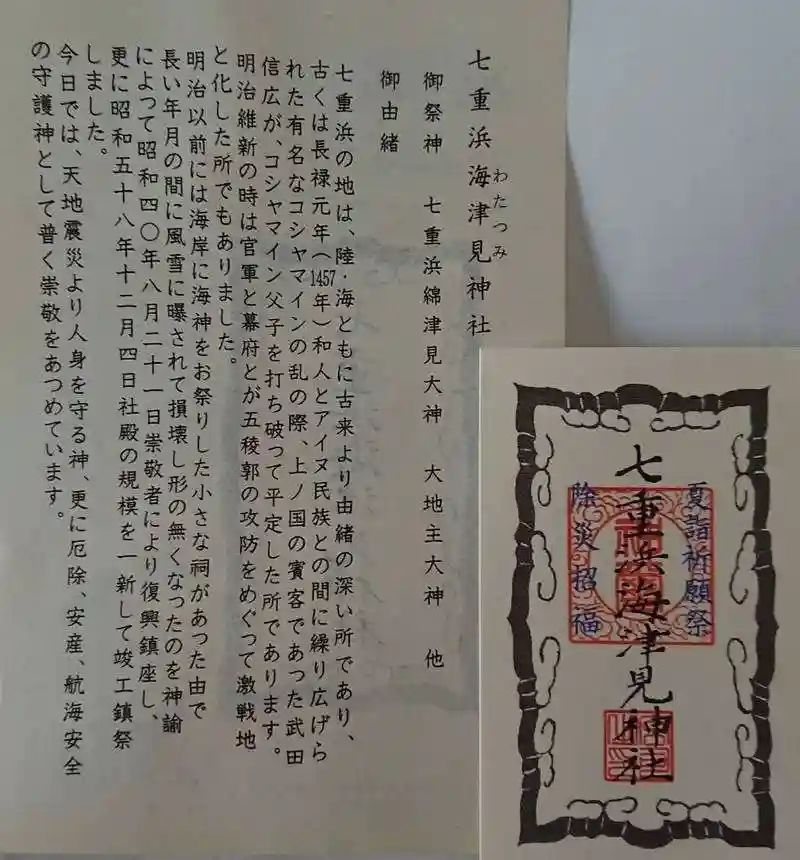 七重浜海津見神社
わたつみ
御祭神 七重浜綿津見大神 大地主大神 他
御由緒
七重浜の地は、陸・海ともに古来より由緒の深い所であり、
古くは長禄元年(1457年)和人とアイヌ民族との間に繰り広げら
れた有名なコシャマインの乱の際、上ノ国の賓客であった武田
信広が、コシャマイン父子を打ち破って平定した所であります。
明治維新の時は官軍と幕府とが五稜郭の攻防をめぐって激戦地
と化した所でもありました。
明治以前には海岸に海神をお祭りした小さな祠があった由で
長い年月の間に風雪に曝されて損壊し形の無くなったのを神諭
によって昭和四〇年八月二十一日崇敬者により復興鎮座し、
更に昭和五十八年十二月四日社殿の規模を一新して竣工鎮祭
しました。
今日では、天地震災より人身を守る神、更に厄除、安産、航海安全
の守護神として普く崇敬をあつめています。
夏詣祈願祭
七重浜海津見神社
除災招福